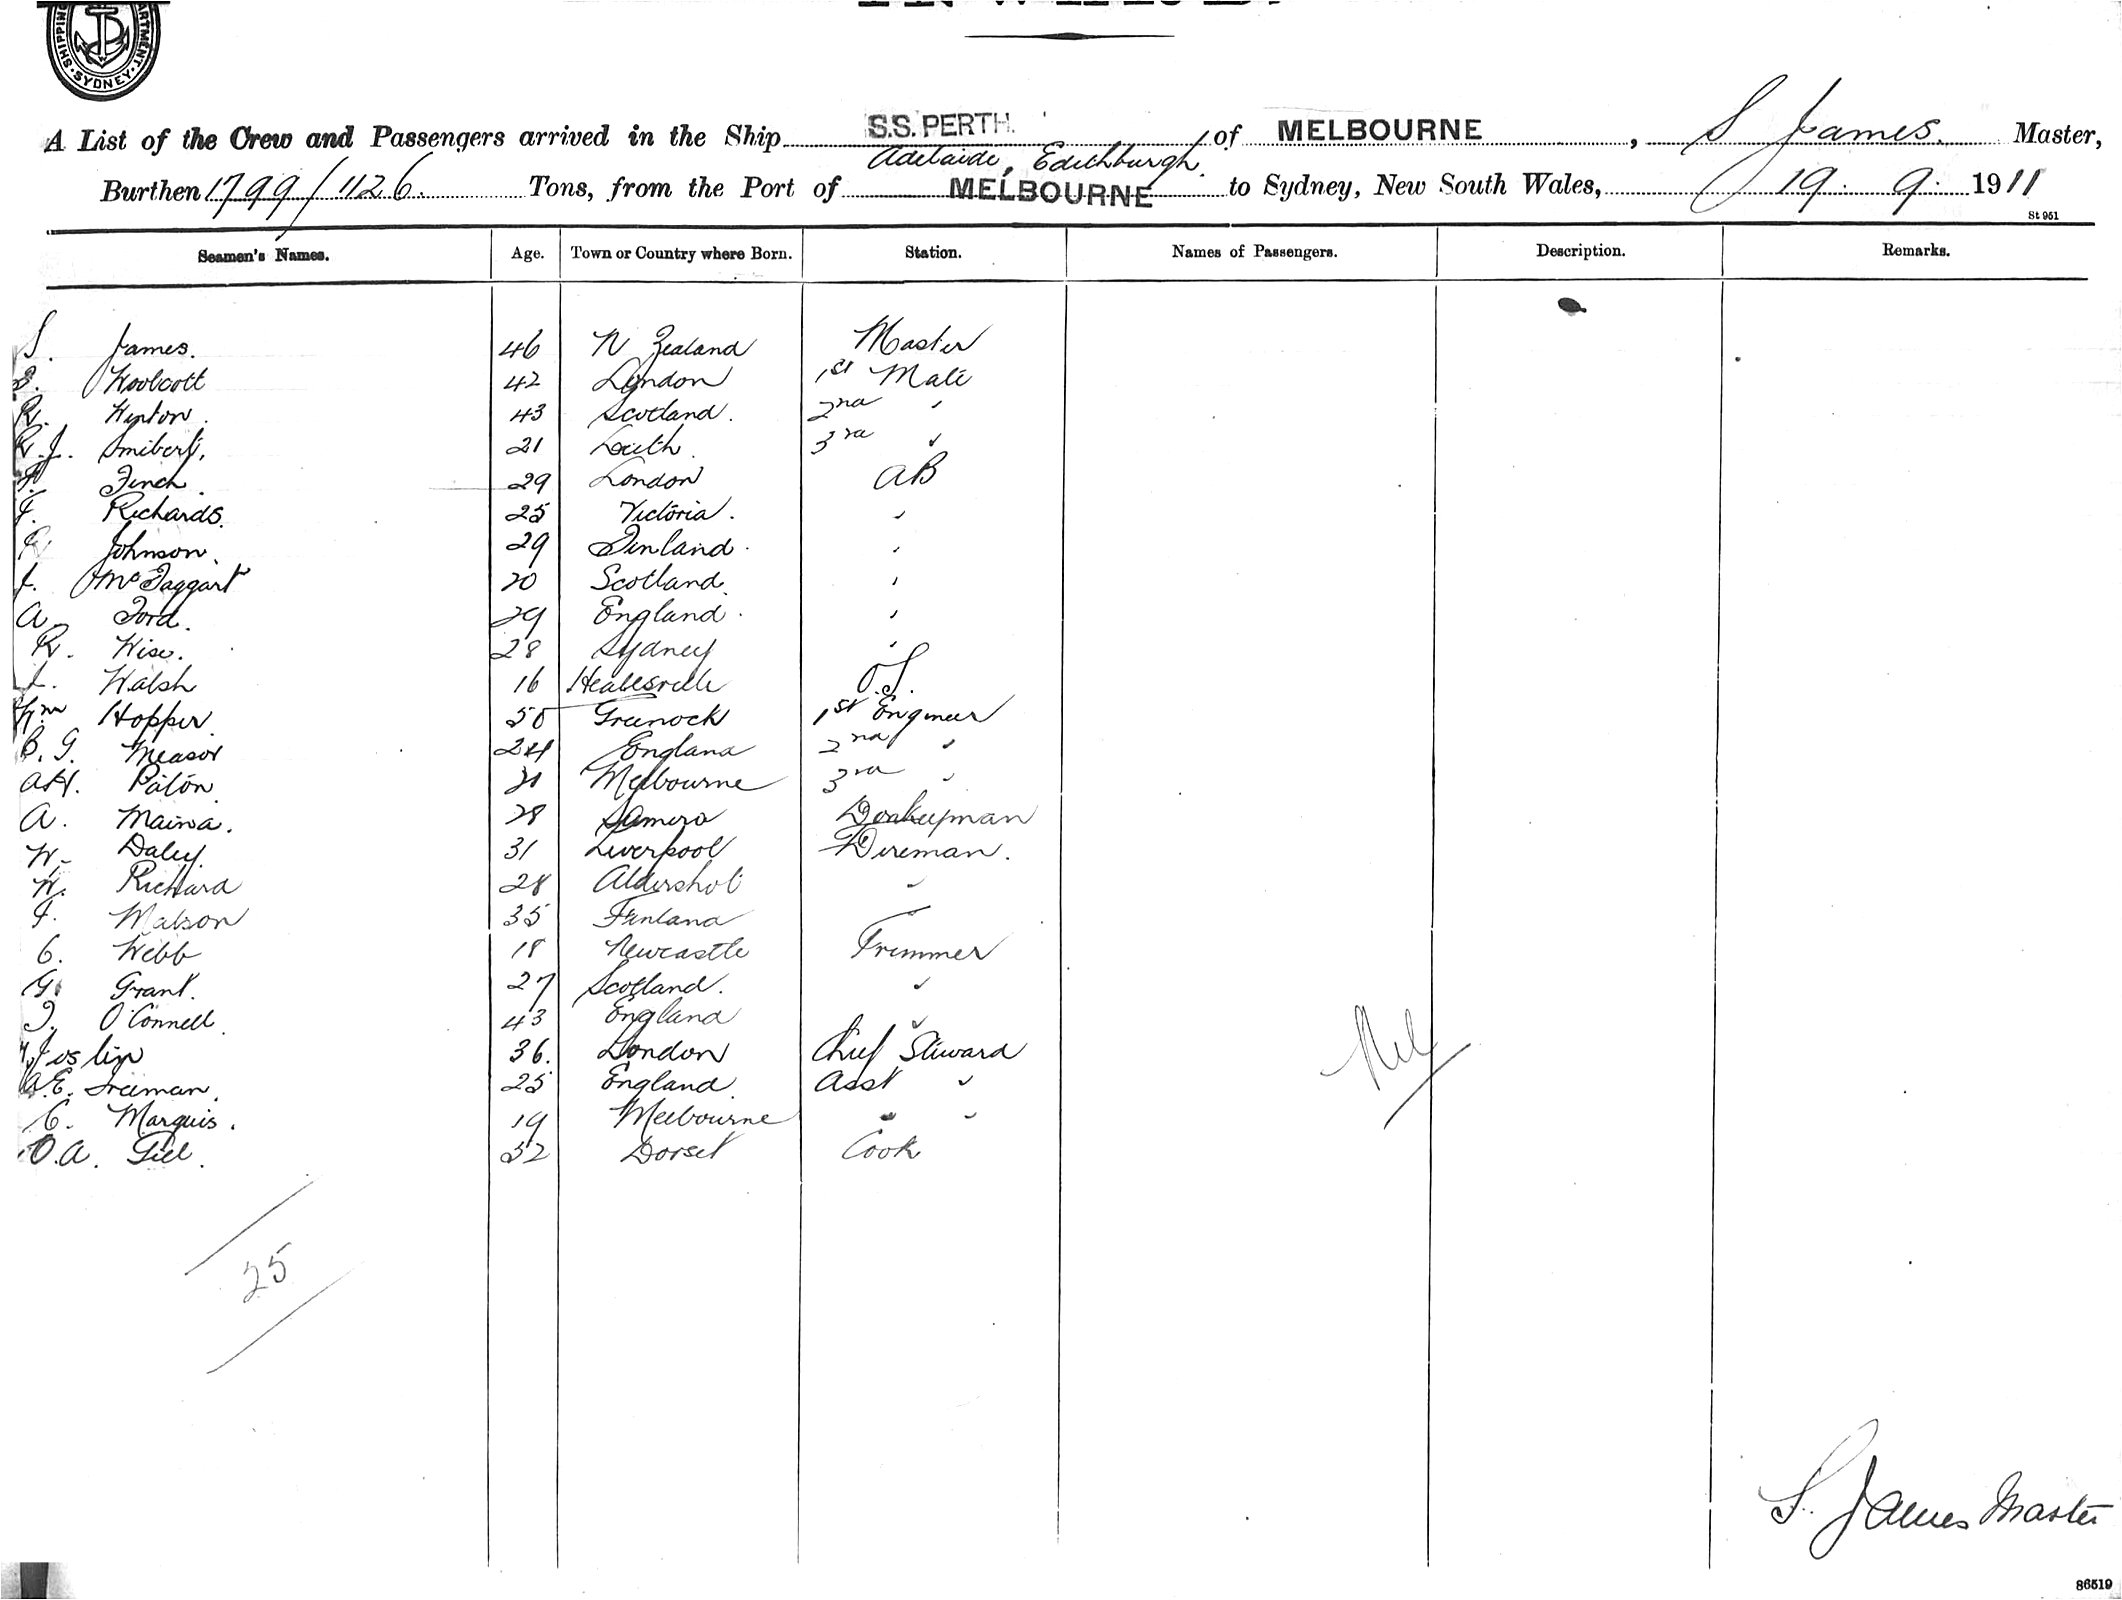 SHIPPING DEPARTMENT SYDNEY
INWARD.
A List of the Crew and Passengers arrived in the Ship S.S. PERTH. of MELBOURNE, S James. Master,
Adelaide, Edithburgh.
Burthen 1799/1126. Tons, from the Port of MELBOURNE to Sydney, New South Wales, 19. 9. 1911
St 951
Seamen's Names. Age. Town or Country where Born. Station. Names of Passengers. Description. Remarks.
S. James. 46 N Zealand Master
Woolcott 42 London 1st Mate
R. Winton. 43 Scotland. 2nd "
R.J. Smibert. 21 Leith. 3rd "
Finch. 29 London AB
F. Richards. 25 Victoria. "
Johnson. 29 Finland. "
McTaggart 20 Scotland. "
A. Ford. 29 England. "
R. Wise. 28 Sydney "
Walsh 16 Healesville O.S.
Wm Hopper 50 Greenock 1st Engineer
B. G. Measor 24 England 2nd "
AH. Paton. 21 Melbourne 3rd "
A. Maina. 28 Donkeyman
W. Daley. 31 Liverpool Fireman.
W. Richard 28 Aldershot "
F. Matson 35 Finland "
C. Webb 18 Newcastle Trimmer
G. Grant. 27 Scotland. "
O'Connell. 43 England "
Joslin 36. London Chief Steward
A.E. Freeman. 25 England. Asst "
C. Marquis. 19 Melbourne " "
O.A. 52 Dorset Cook
Nil
25
S. James Master
86519